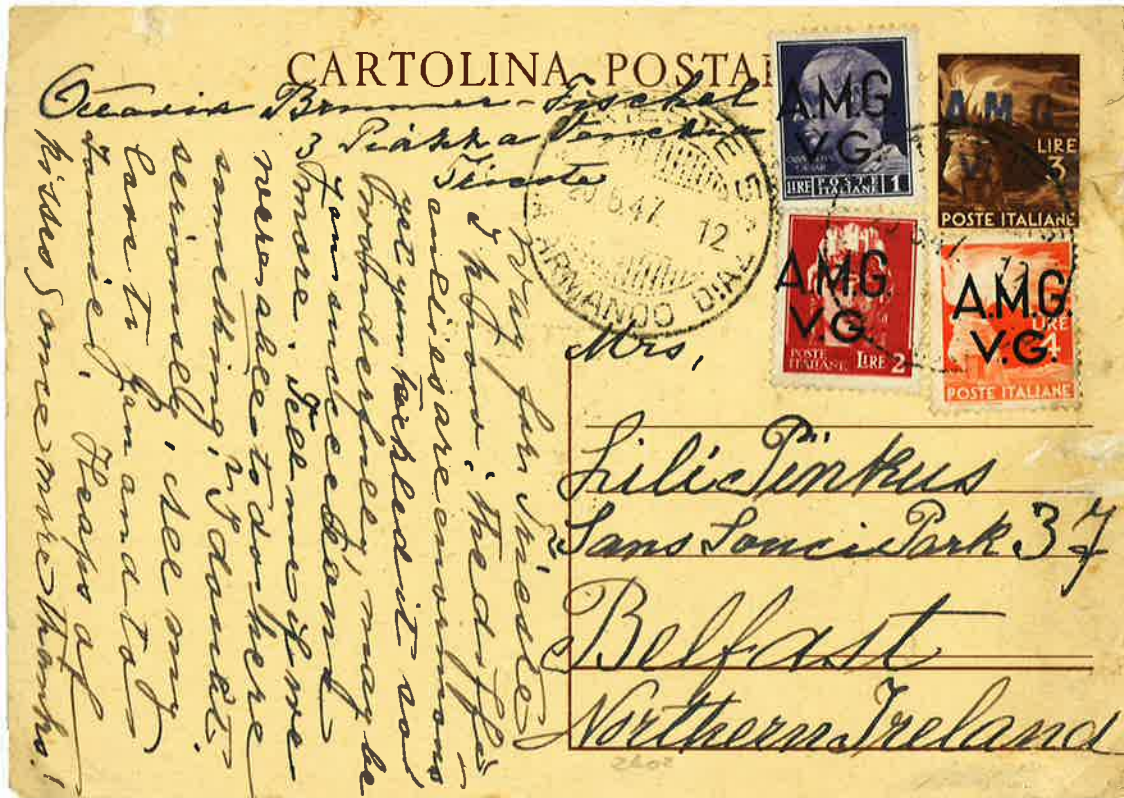 CARTOLINA POSTAL
Ottavia Brunner-Fischel
3 Piazza Venezia
Trieste
A.M.G.
V.G.
LIRE POSTE ITALIANE 1
A.M.G.
V.G.
LIRE
3
POSTE ITALIANE
A.M.G.
V.G.
POSTE ITALIANE LIRE 2
A.M.G.
V.G.
LIRE
4
POSTE ITALIANE
TRIESTE
6.47 12
ARMANDO DIAZ
Mrs,
Lili Pinkus
"Sans Souci Park 37
Belfast
Northern Ireland
2602
for Trieste,
I know, the diffi-
culties are enormous
yet you tackled it so
wonderfully, may be
you succed any
more. Tell me if we
were able to do here
something, I don't
seriously, see my
love to Jan and to
Tannie. Heaps of
kisses & once more thanks!